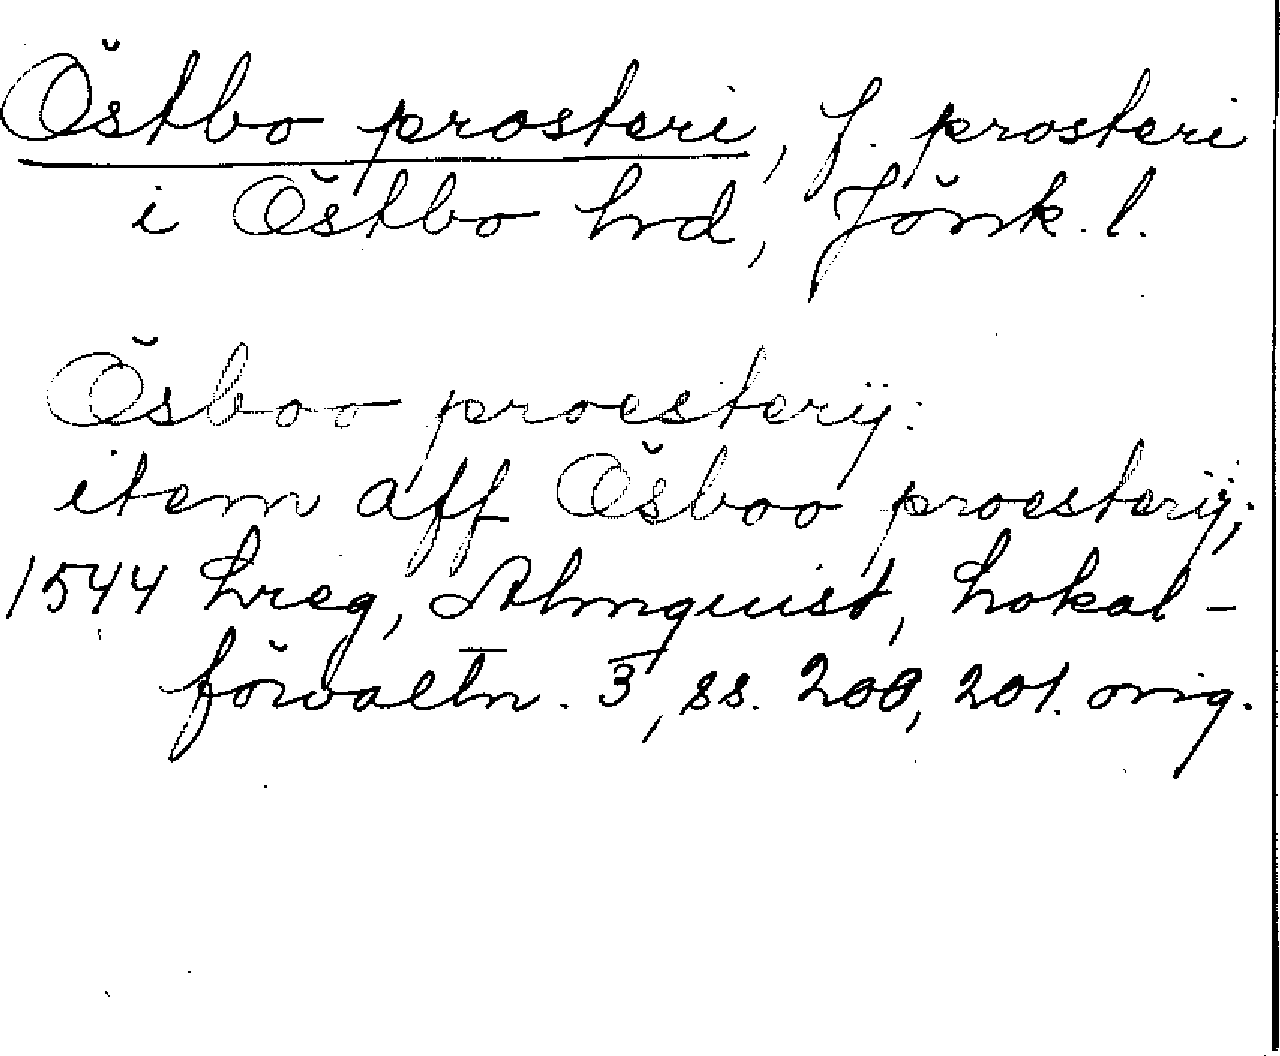 Östbo prosteri, f. prosteri
i Östbo hrd, Jönk. l.
Ösboo proesterij:
item aff Ösboo proesterij;
1544 hreg, Almquist, Lokal-
förvaltn. 3, ss. 200, 201. orig.